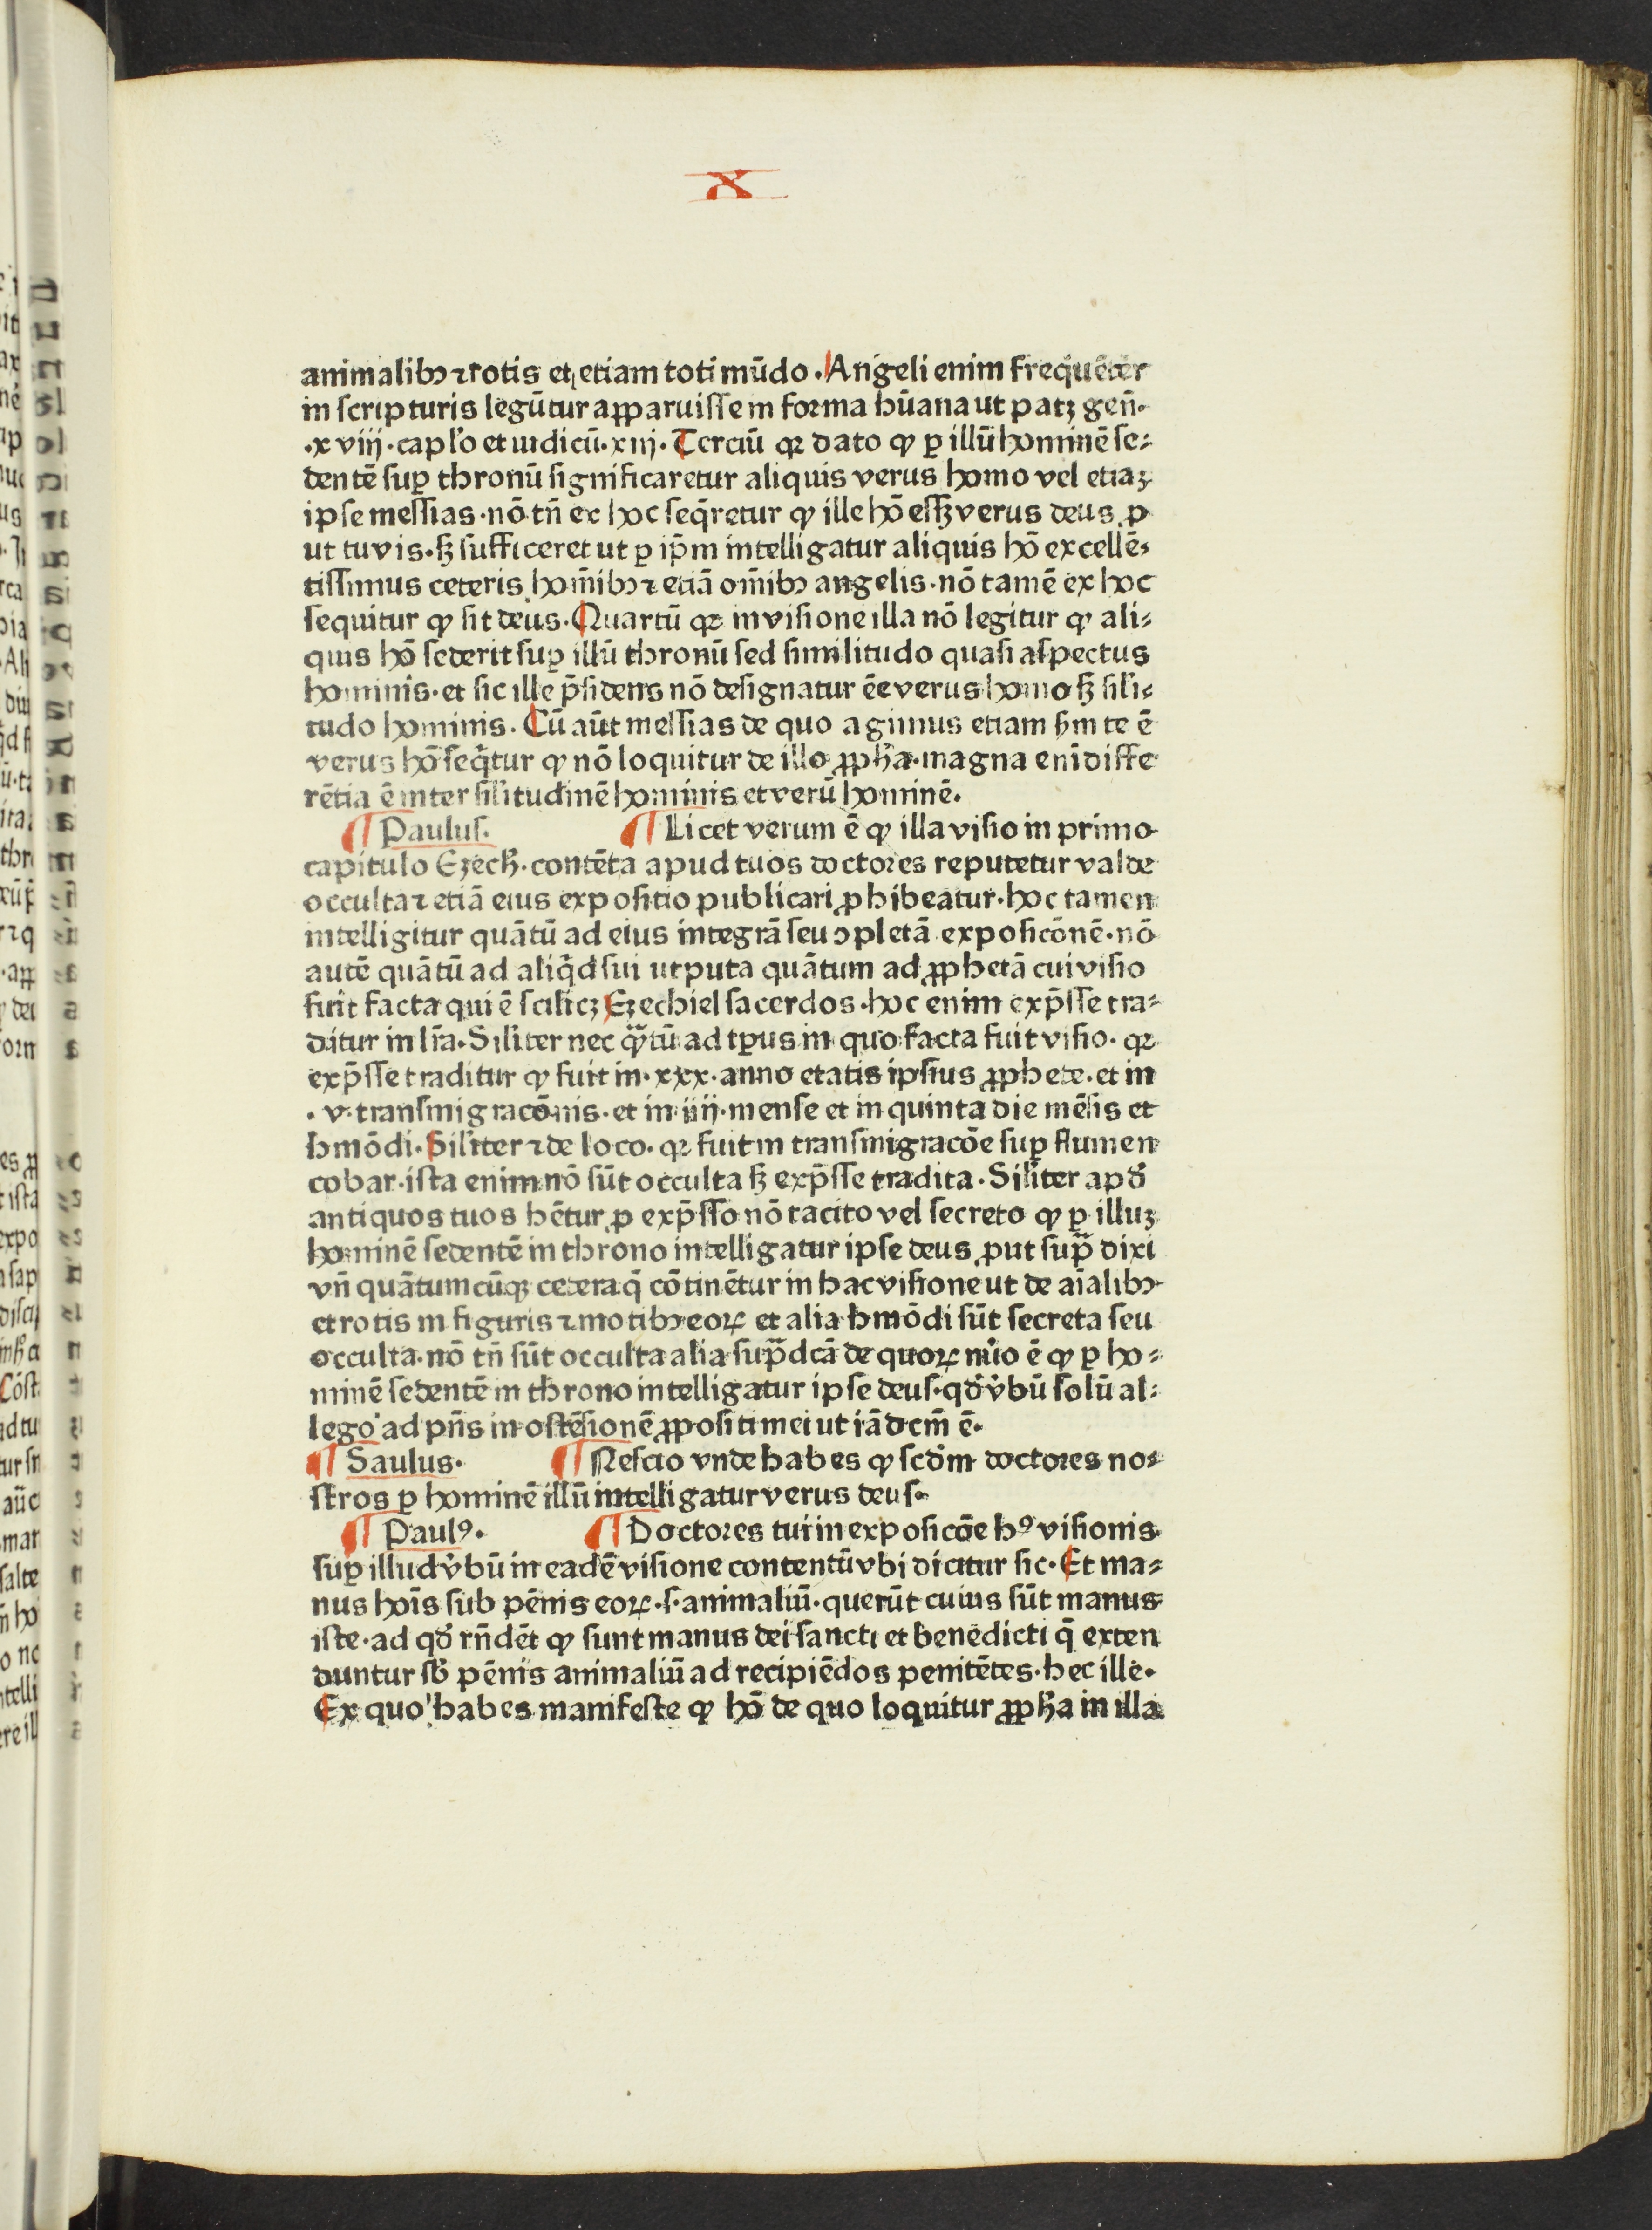 X
animalibꝫ ⁊ rotis et etiam toti mūdo · Angeli enim frequēter
in scripturis legūtur apparuisse in forma hūana ut patꝫ gen̄ ·
· x viij · cap̄lo et iudicū · xiij · Terciū qꝛ dato ꝙ ꝑ illū hominē se⸗
dentē suꝑ thronū significaretur aliquis verus homo vel etiaꝫ
ipse messias · nō tn̄ ex hoc seq̄retur ꝙ ille hō essꝫ verus deus ꝓ
ut tu vis · sꝫ sufficeret ut ꝑ ip̄m intelligatur aliquis hō excellē⸗
tissimus ceteris hom̄ibꝫ ⁊ etiā om̄ibꝫ angelis · nō tamē ex hoc
sequitur ꝙ sit deus · Quartū qꝛ in visione illa nō legitur ꝙ ali⸗
quis hō sederit suꝑ illū thronū sed similitudo quasi aspectus
hominis · et sic ille p̄sidens nō designatur ēe verus homo sꝫ sili⸗
tudo hominis · Cū aūt messias de quo agimus etiam ẜm te ē
verus hō seq̄tur ꝙ nō loquitur de illo ꝓpħa · magna eni differ
rētia ē inter silitudinē hominis et verū hominē ·
¶ Paulus · ¶ Licet verum ē ꝙ illa visio in primo
capitulo Ezecħ · contēta apud tuos doctores reputetur valde
occulta ⁊ etiā eius expositio publicari ꝓhibeatur · hoc tamen
intelligitur quātū ad eius integrā seu ↄpletā exposicōnē · nō
autē quātū ad aliq̄d sui utputa quātum ad ꝓphetā cui visio
fuit facta qui ē scilicꝫ Ezechiel sacerdos · hoc enim exp̄sse tra⸗
ditur in lr̄a · Siliter nec q̄tū ad tꝑus in quo facta fuit visio · qꝛ
exp̄sse traditur ꝙ fuit in · xxx · anno etatis ipsius ꝓphete · et in
· v · transmigracōnis · et in iiij · mense et in quinta die mēsis et
hmōdi · Siliter ⁊ de loco · qꝛ fuit in transmigracōe suꝑ flumen
cobar · ista enim nō sūt occulta sꝫ exp̄sse tradita · Siliter apđ
antiquos tuos hētur ꝓ exp̄sso nō tacito vel secreto ꝙ ꝑ illuꝫ
hominē sedentē in throno intelligatur ipse deus ꝓut sup̄ dixi
vn̄ quātumcūqꝫ cetera q̄ cōtinētur in hac visione ut de aīalibꝫ
et rotis in figuris ⁊ motibꝫ eoꝝ et alia hmōdi sūt secreta seu
occulta · nō tn̄ sūt occulta alia sup̄dcā de quoꝝ nūo ē ꝙ ꝑ ho⸗
minē sedentē in throno intelligatur ipse deus · qđ v̄bū solū al⸗
lego ad pn̄s in ostēsionē ꝓpositi mei ut iā dcm̄ ē ·
¶ Saulus · ¶ Nescio vnde habes ꝙ scđm doctores no⸗
stros ꝑ hominē illū intelligatur verus deus ·
¶ Paulꝰ · ¶ Doctores tui in exposicōe hꝰ visionis
suꝑ illud v̄bū in eadē visione contentū vbi dicitur sic · Et ma⸗
nus hoīs sub pēnis eoꝝ · s · animaliū · querūt cuius sūt manus
iste · ad qđ rn̄dēt ꝙ sunt manus dei sancti et benedicti q̄ exten
duntur sb̄ pēnis animaliū ad recipiēdos penitētes · hec ille ·
Ex quo habes manifeste ꝙ hō de quo loquitur ꝓpħa in illa